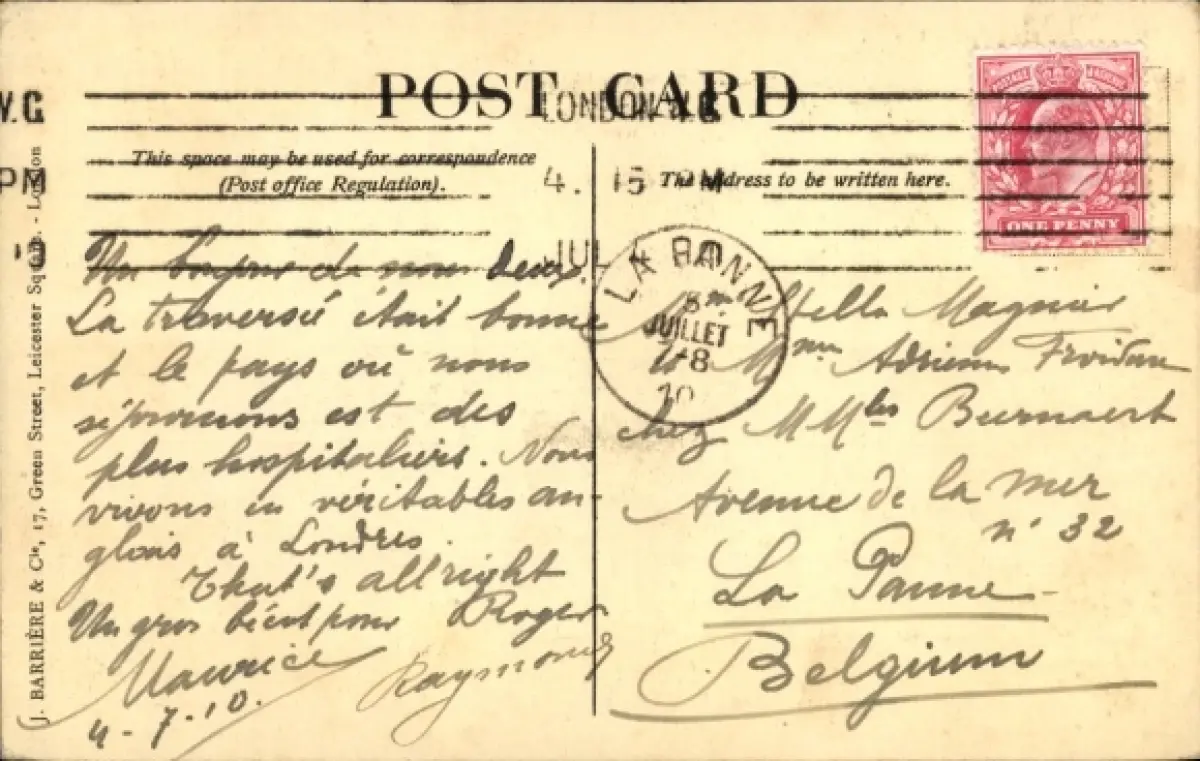 POST CARD
LONDON. W.C
W.C
4. 15 PM
PM
JUL 4 10
10
This space may be used for correspondence
(Post office Regulation).
The address to be written here.
ONE PENNY
LA PANNE
JUILLET
J. BARRIÈRE & Cie, 17, Green Street, Leicester Square. - London
Un bonjour de nous deux.
La traversé était bonne
et le pays où nous
séjournons est des
plus hospitaliers. Nous
vivons en véritables an-
glais à Londres.
That's allright
Un gros bécot pour Roger
Maurice Raymond
4-7-10.
Stella Magnier
Mme Adrienne
chez MMlles Burnaert
Avenue de la mer
n° 32
La Panne
Belgium